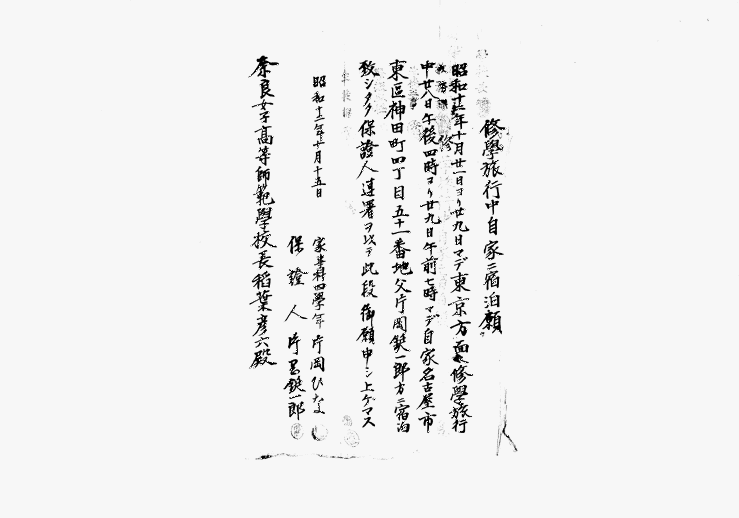 修學旅行中自家ニ宿泊願
昭和十二年十月廿一日ヨリ廿九日マデ東京方面ヘ修學旅行
中廿八日午後四時ヨリ廿九日午前七時マデ自家名古屋市
東區神田町四丁目五十一番地父片岡鋭一郎方ニ宿泊
致シタク保證人連署ヲ以テ此段御願申シ上ゲマス
昭和十二年十月十五日
家事科四學年 片岡ひなよ
保證人 片岡鋭一郎
奈良女子高等師範學校長稻葉彦六殿